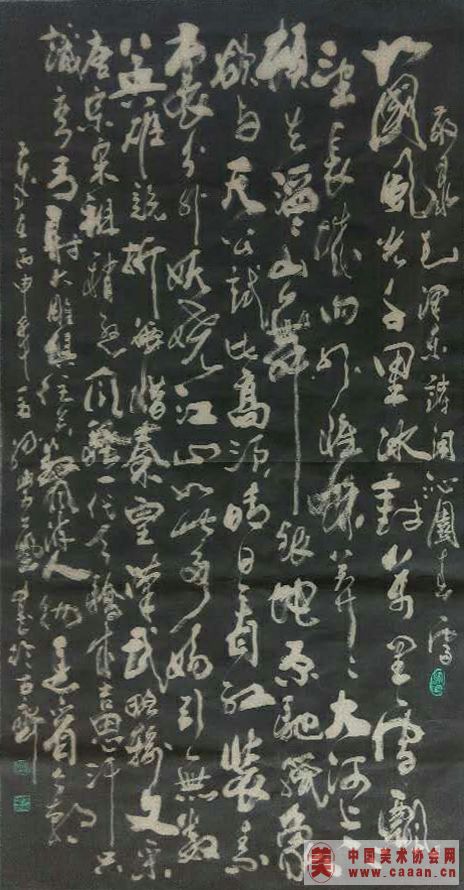 敬录毛泽东诗词沁园春雪
北国风光千里冰封万里雪飘
望长城内外惟余莽々大河上下
顿失滔々山舞银蛇原驰蜡象
欲与天公试比高须晴日看红装素
裹分外妖娆江山如此多娇引无数
英雄竞折腰惜秦皇汉武略输文采
唐宗宋祖稍逊风骚一代天骄成吉思汗只
识弯弓射大雕俱往矣数风流人物还看今朝
丙申年 书於古
中国美术协会网
www.caaan.cn